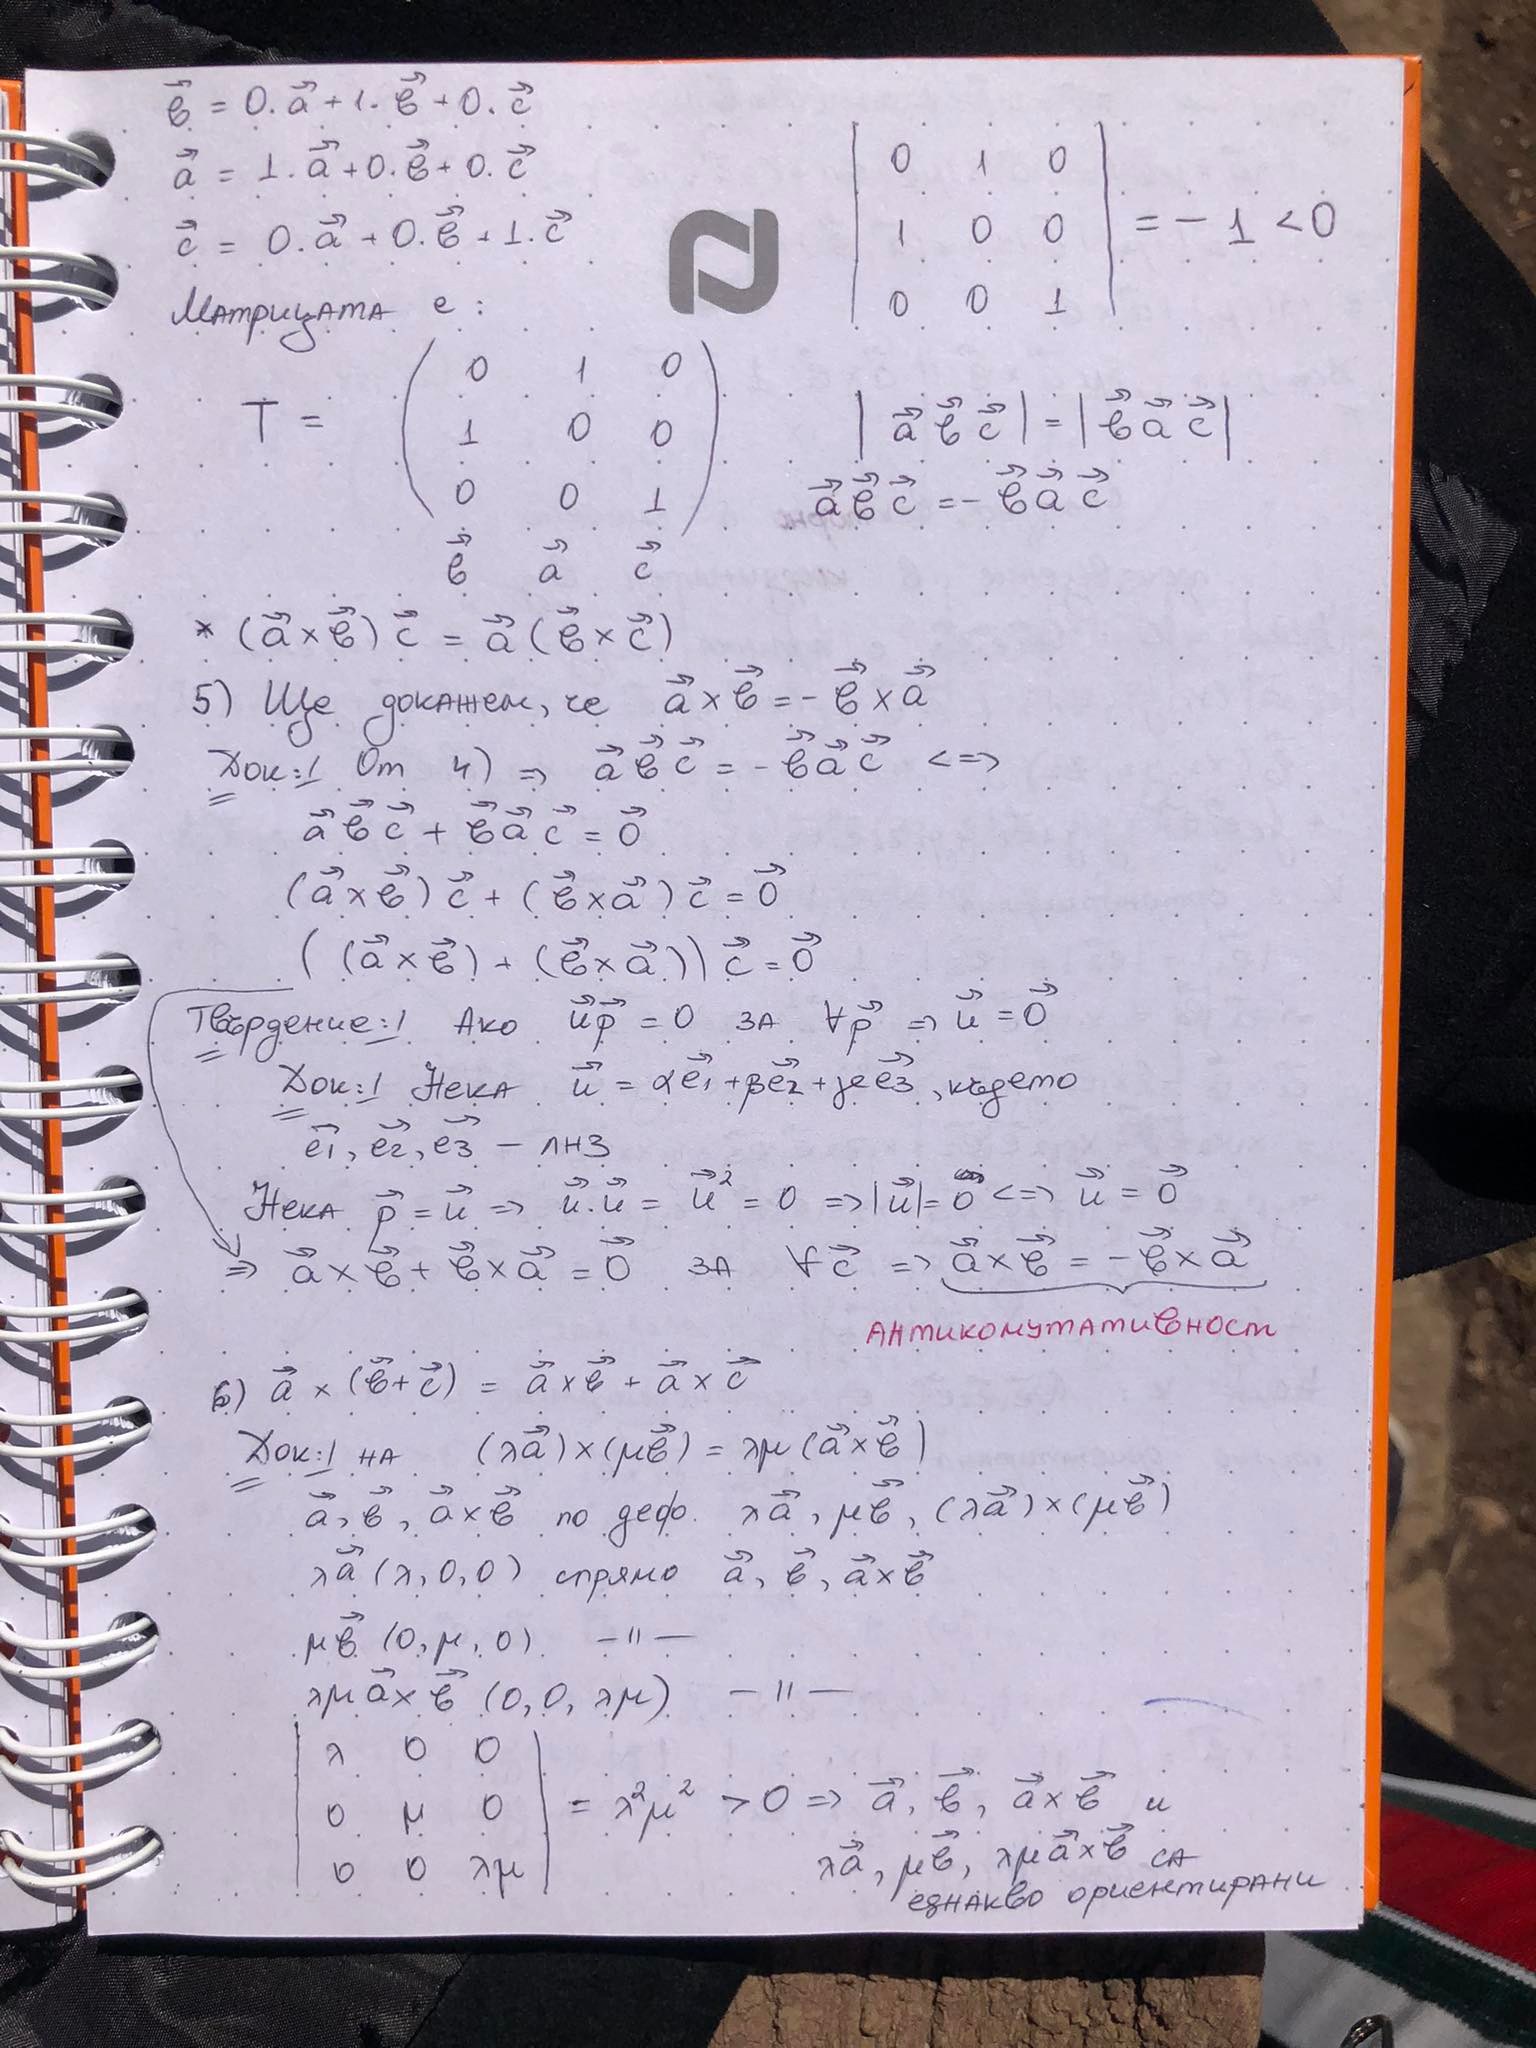 b⃗ = 0.a⃗ + 1.b⃗ + 0.c⃗
a⃗ = 1.a⃗ + 0.b⃗ + 0.c⃗
c⃗ = 0.a⃗ + 0.b⃗ + 1.c⃗
| 0 1 0 |
| 1 0 0 | = - 1 < 0
| 0 0 1 |
Матрицата е :
( 0 1 0 )
T = ( 1 0 0 )
( 0 0 1 )
b⃗ a⃗ c⃗
| a⃗ b⃗ c⃗ | = | b⃗ a⃗ c⃗ |
a⃗ b⃗ c⃗ = - b⃗ a⃗ c⃗
* (a⃗ × b⃗) c⃗ = a⃗ (b⃗ × c⃗)
5) Ще докажем, че a⃗ × b⃗ = - b⃗ × a⃗
Док:| От 4) ⇒ a⃗ b⃗ c⃗ = - b⃗ a⃗ c⃗ <=>
a⃗ b⃗ c⃗ + b⃗ a⃗ c⃗ = 0⃗
(a⃗ × b⃗) c⃗ + (b⃗ × a⃗) c⃗ = 0⃗
((a⃗ × b⃗) + (b⃗ × a⃗)) c⃗ = 0⃗
Твърдение:| Ако u⃗p⃗ = 0 за ∀p⃗ ⇒ u⃗ = 0⃗
Док:| Нека u⃗ = αe⃗1 + βe⃗2 + γe⃗3, където
e⃗1, e⃗2, e⃗3 – ЛНЗ
Нека p⃗ = u⃗ ⇒ u⃗.u⃗ = u⃗² = 0 ⇒ |u⃗| = 0 <=> u⃗ = 0⃗
⇒ a⃗ × b⃗ + b⃗ × a⃗ = 0⃗ за ∀c⃗ ⇒ a⃗ × b⃗ = - b⃗ × a⃗
антикомутативност
6) a⃗ × (b⃗ + c⃗) = a⃗ × b⃗ + a⃗ × c⃗
Док:| на (λa⃗) × (μb⃗) = λμ (a⃗ × b⃗)
a⃗, b⃗, a⃗ × b⃗ по деф. λa⃗, μb⃗, (λa⃗) × (μb⃗)
λa⃗ (λ, 0, 0) спрямо a⃗, b⃗, a⃗ × b⃗
μb⃗ (0, μ, 0) –||–
λμ a⃗ × b⃗ (0, 0, λμ) –||–
| λ 0 0 |
| 0 μ 0 | = λ²μ² > 0 ⇒ a⃗, b⃗, a⃗ × b⃗ и
| 0 0 λμ | λa⃗, μb⃗, λμ a⃗ × b⃗ са
еднакво ориентирани